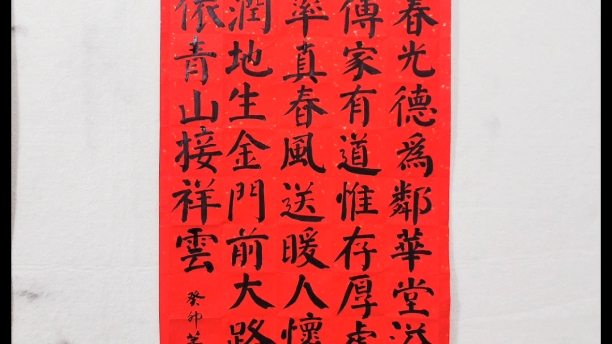 春光德爲鄰華堂溢
傳家有道惟存厚處
率真春風送暖人懷
潤地生金門前大路
依青山接祥雲
癸卯